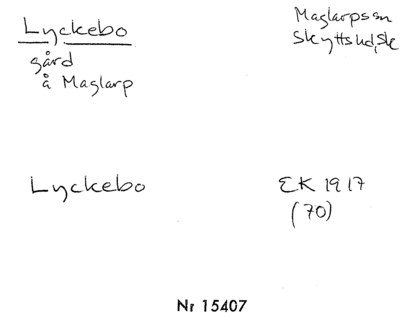 Lyckebo
gård
å Maglarp
Maglarps sn
Skytts hd, Sk
Lyckebo
EK 1917
(70)
Nr 15407